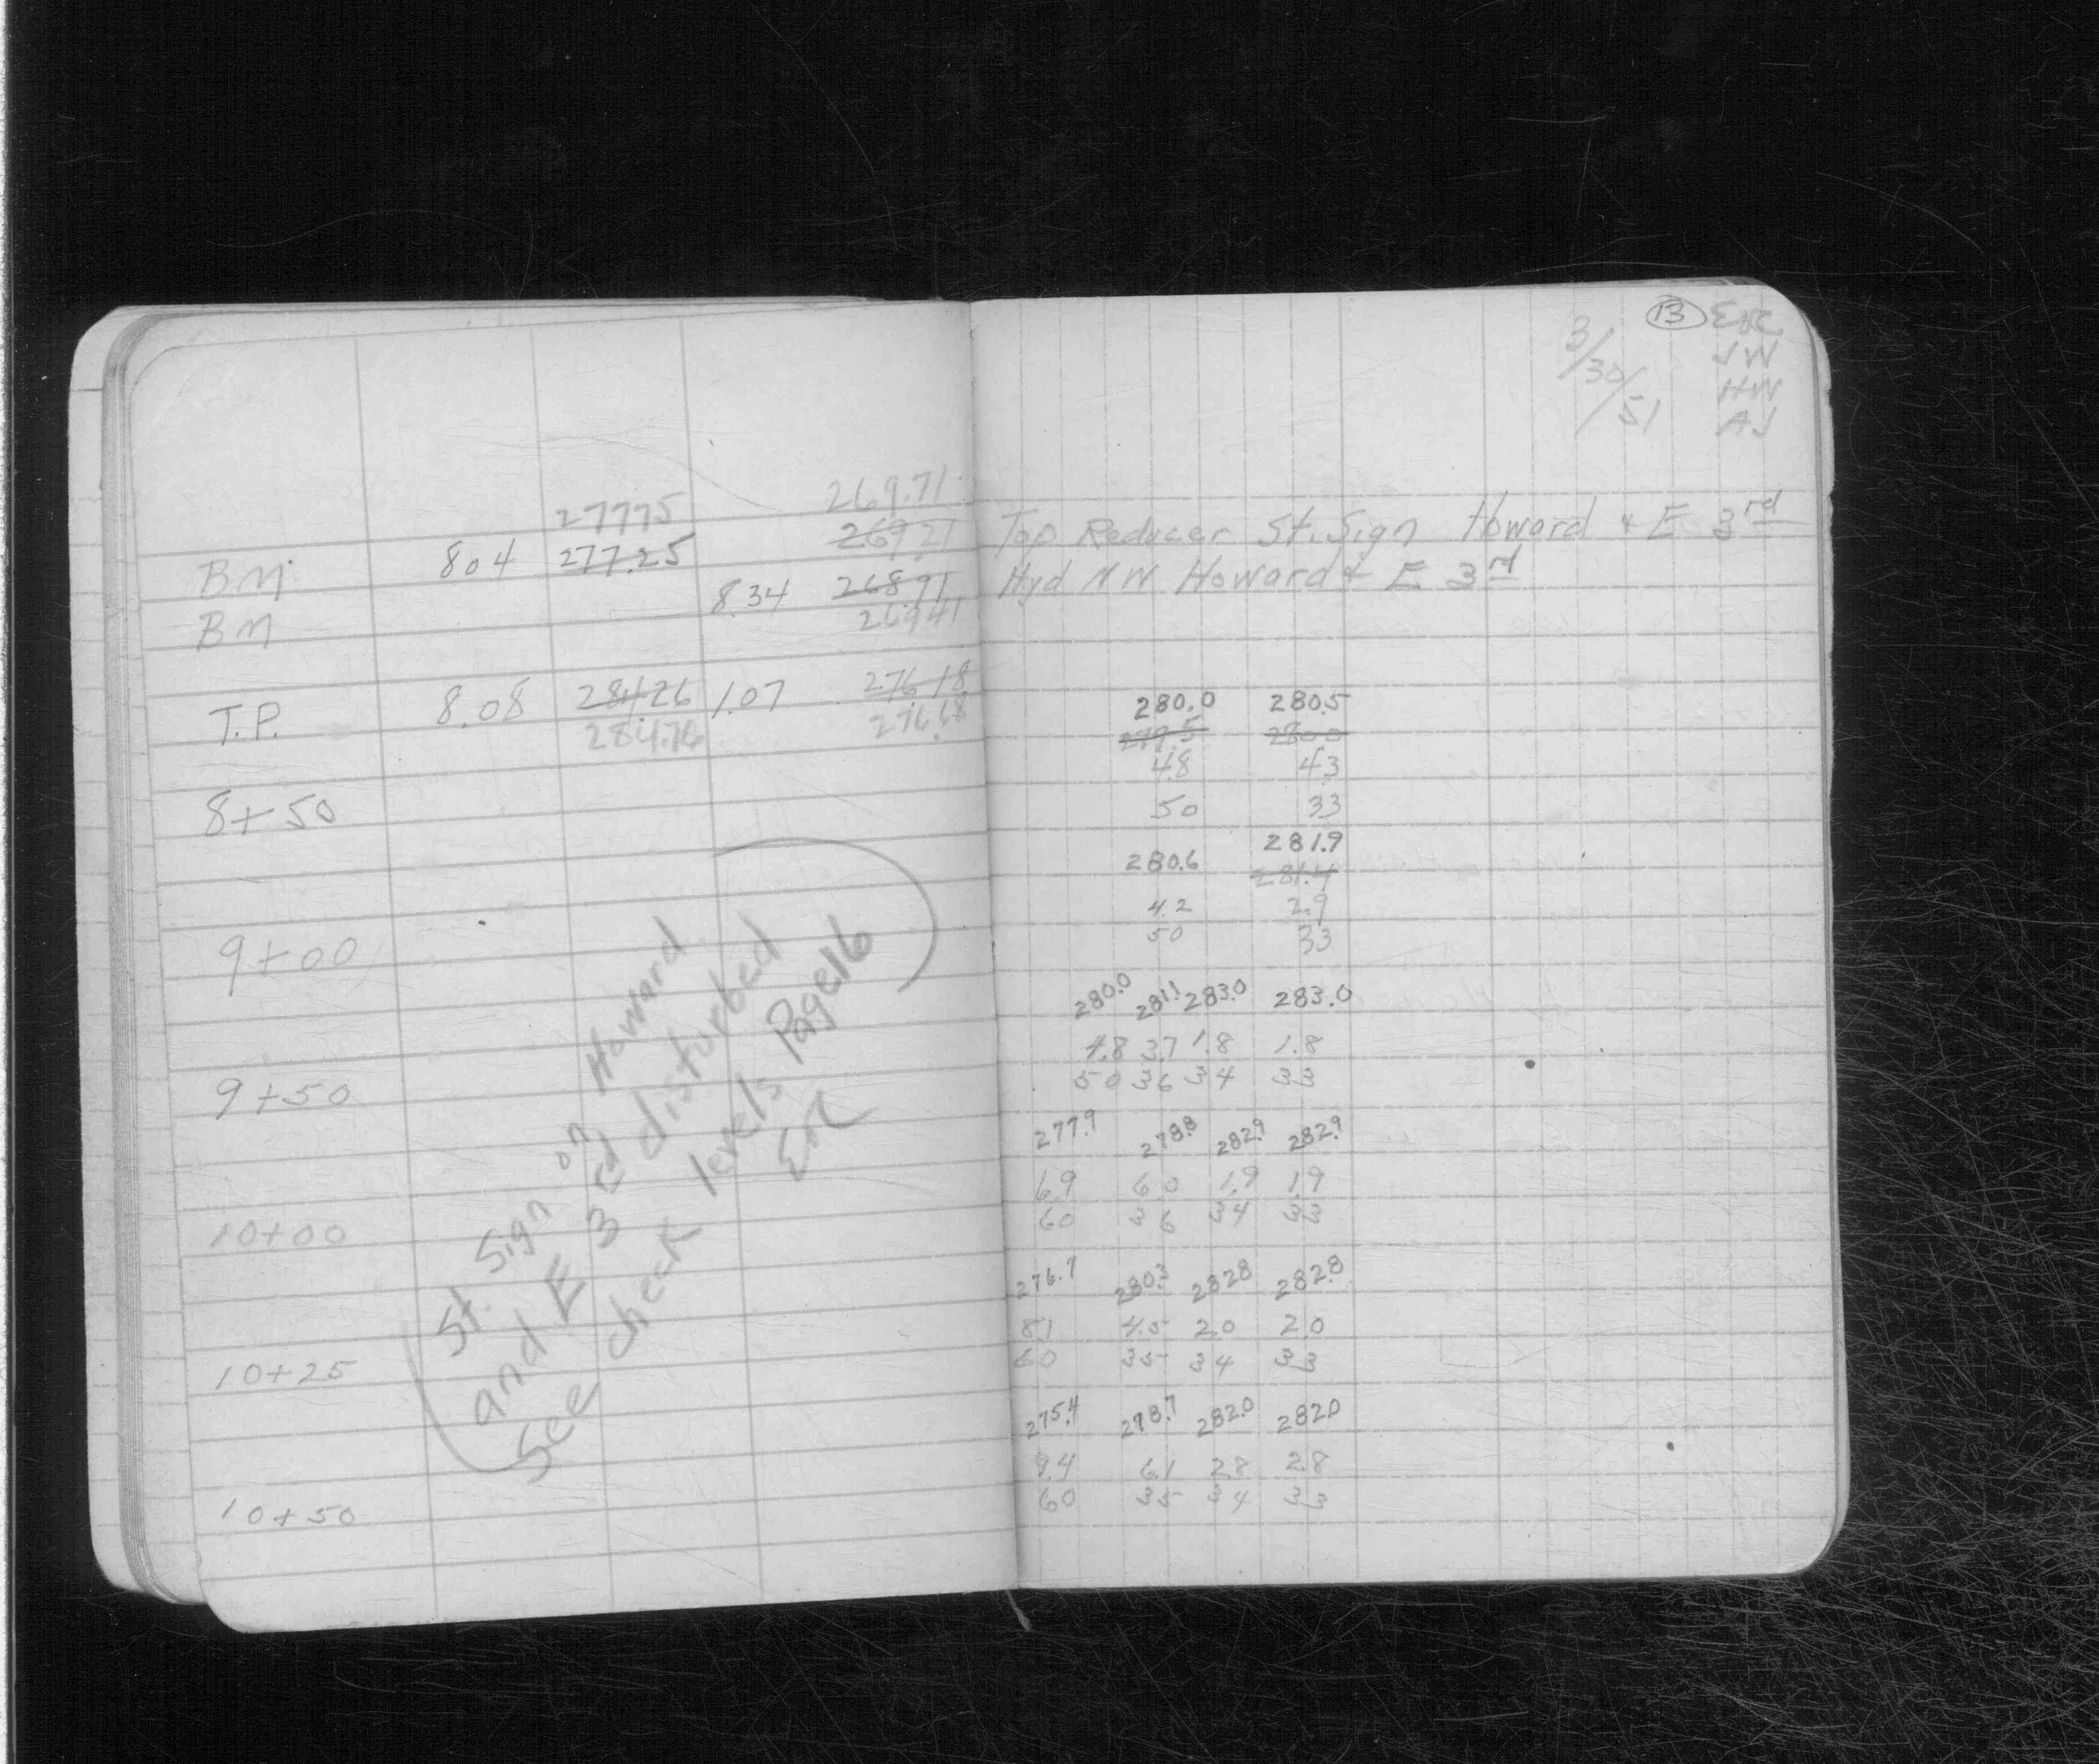 13 ENR
3/30/51 JW
HW
AJ
277.75 269.71
BM 8.04 277.25 269.21 Top Reducer St. Sign Howard & E 3rd
BM 8.34 268.91 Hyd NW Howard & E 3rd
269.41
T.P. 8.08 284.26 1.07 276.18
284.76 276.68
280.0 280.5
279.5 280.0
4.8 4.3
8+50 50 33
281.9
280.6 281.4
4.2 2.9
9+00 50 33
280.0 281.1 283.0 283.0
4.8 3.7 1.8 1.8
9+50 50 36 34 33
277.9 278.8 282.9 282.9
6.9 6.0 1.9 1.9
10+00 60 36 34 33
276.7 280.3 282.8 282.8
8.1 4.5 2.0 2.0
10+25 60 35 34 33
275.4 278.7 282.0 282.0
9.4 6.1 2.8 2.8
10+50 60 35 34 33
St. Sign on Howard
and E 3rd disturbed
See check levels Page 16